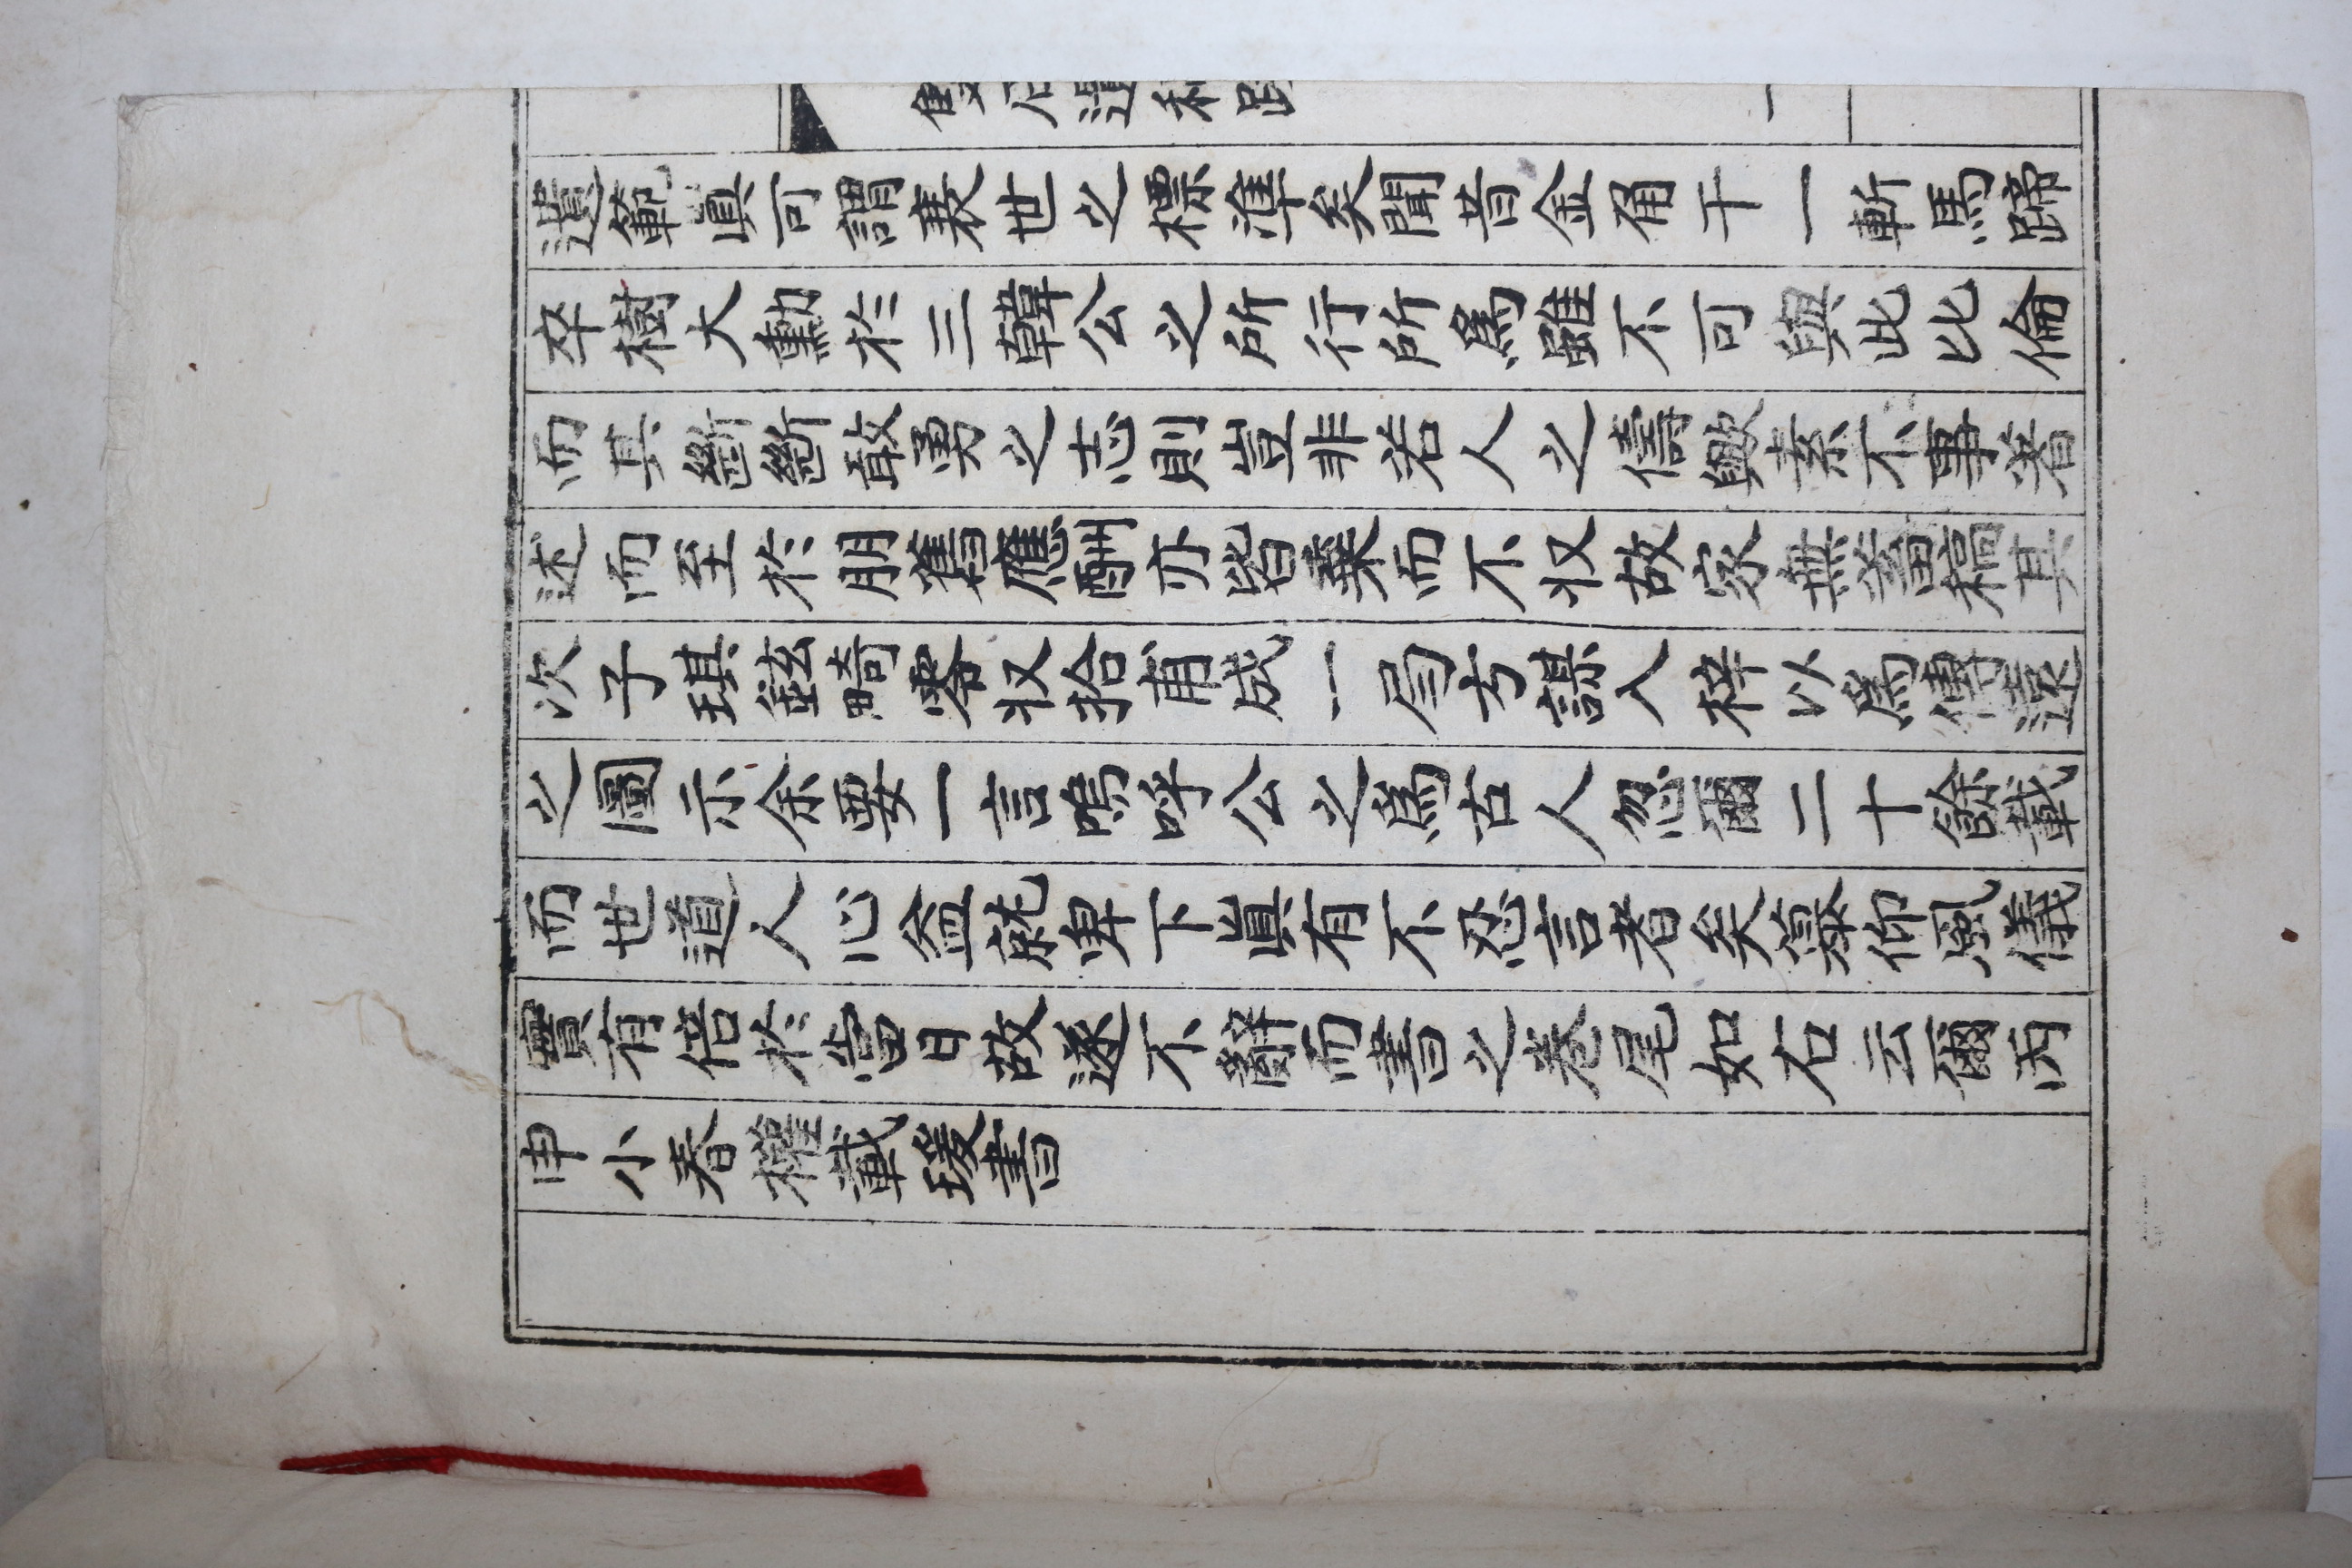 遺稿跋 一
遺範眞可謂衰世之標準矣聞昔金角干一斬馬蹄
卒樹大勳於三韓公之所行所爲雖不可與此比倫
而其斷斷敢勇之志則豈非若人之儔歟素不事著
述而至於朋舊應酬亦皆棄而不收故家無蓄稿其
次子琪鉉畸零收拾甫成一弓方謀入梓以爲傳遠
之圖示余要一言嗚呼公之爲古人忽爾二十餘載
而世道人心益就卑下眞有不忍言者矣欽仰風儀
實有倍於當日故遂不辭而書之卷尾如右云爾丙
申小春權載璦書